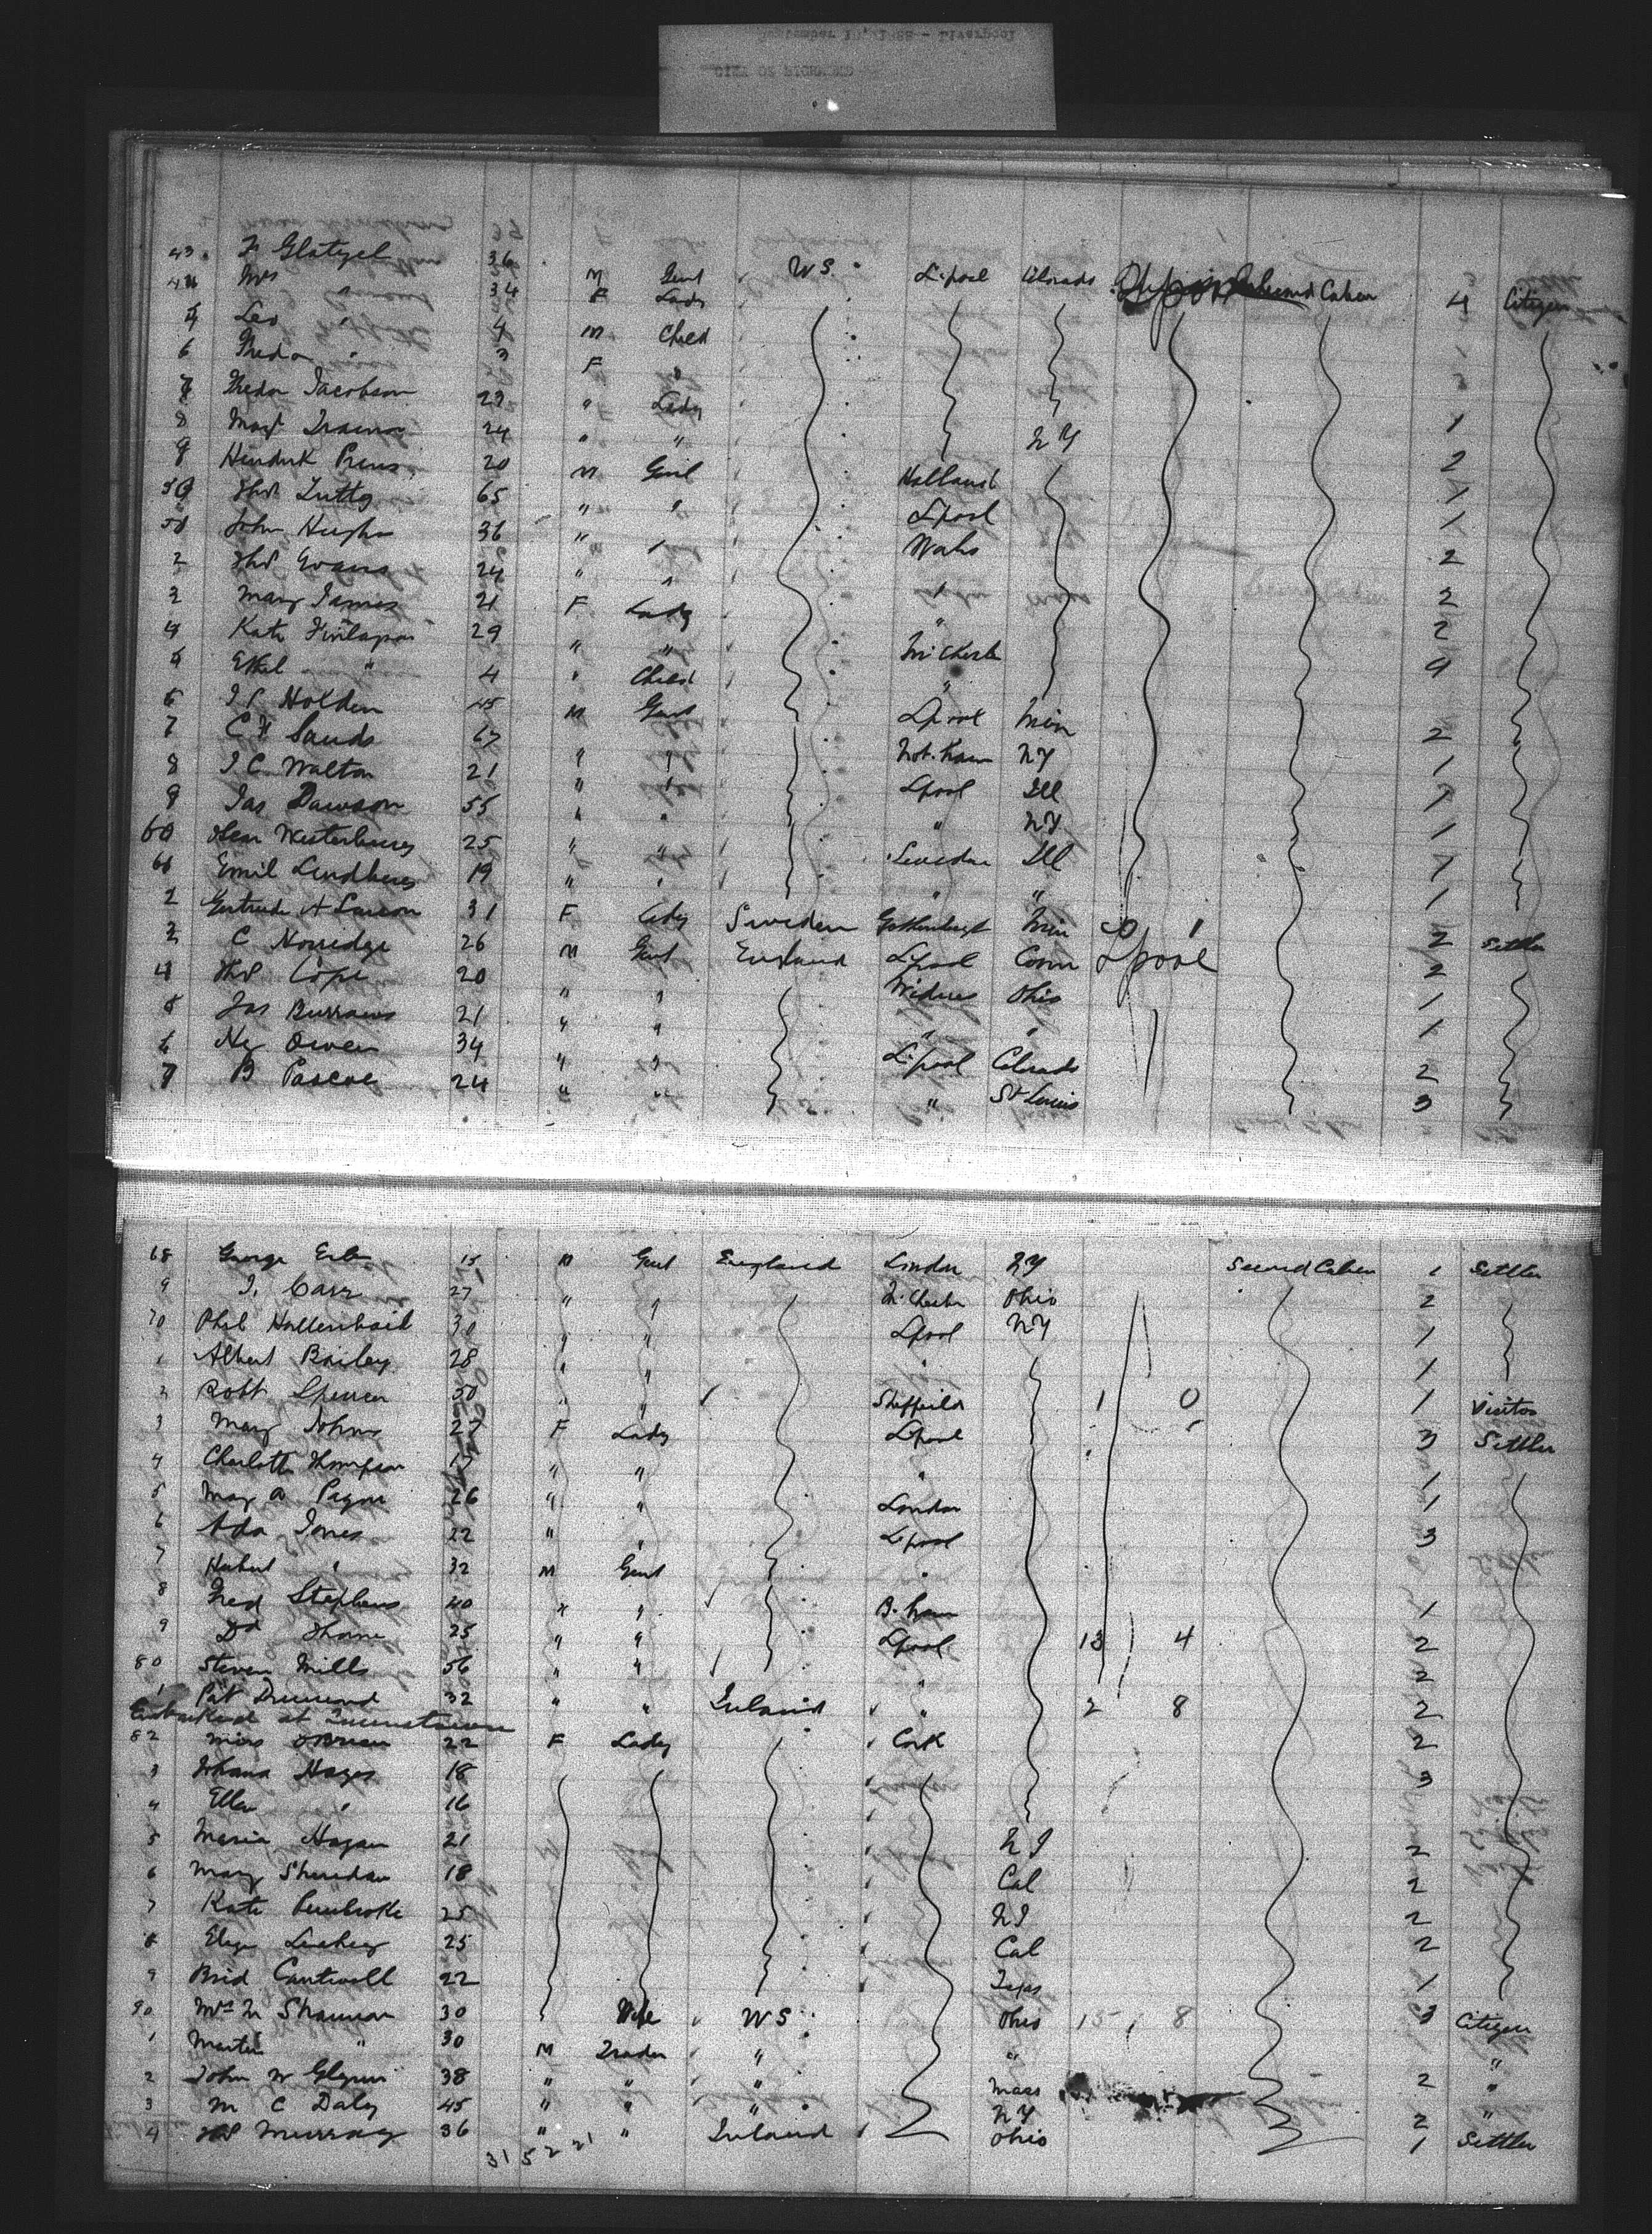 43 F Glatzel 36 M Gent W S. L'pool Colorado Second Cabin 4 Citizen
44 Mrs " 34 F Lady
5 Leo " 4 M Child
6 Freda " 3 F "
7 Freda Jacobson 23 " Lady 1
8 24 " " N Y 2
9 Hendrik 20 M Gent Holland 1
50 Thos 65 " " L'pool 1
51 John Hughs 36 " " Wales 2
2 Thos Evans 24 " " " 2
3 Mary James 21 F Lady " 2
4 Kate 29 " " M'chester 9
5 Ethel " 4 " Child "
6 J P Holden 45 M Gent L'pool Min 2
7 C H Sands 67 " " Not. ham N Y 1
8 J. C. Walton 21 " " L'pool Ill 1
9 Jas Dawson 55 " " " N Y 1
60 Oscar 25 " " Sweden Ill 1
61 Emil Lindberg 19 " " " " 1
2 Gertrude A Larson 31 F Lady Sweden Min 20 1 2 Settler
3 C Norridge 26 M Gent England L'pool Conn L'pool 2
4 Thos Cope 20 " " Widnes Ohio 1
5 Jas Burrows 21 " " " " 1
6 Hy Owen 34 " " L'pool Colorado 2
7 B Pascoe 24 " " " St Louis 3
68 George 15 M Gent England London N Y Second Cabin 1 Settler
9 J. Carr 27 " " M'Chester Ohio 2
70 Phil 30 " " L'pool N Y 1
1 Albert Bailey 28 " " " 1
2 Robt Spencer 50 " " Sheffield 1 0 1 Visitor
3 Mary Johns 27 F Lady L'pool 3 Settler
4 Charlotte Thompson 17 " " " 1
5 Mary A Payne 26 " " London 1
6 Ada Jones 22 " " L'pool 3
7 Herbert " 32 M Gent "
8 Fred Stephens 40 " " B. ham 1
9 Dd Thorne 25 " " L'pool 13 4 2
80 Steven Mills 56 " " " 2
1 Pat 32 " " Ireland " 2 8 2
Embarked at Queenstown
82 Miss OBrien 22 F Lady Cork 2
3 Johana Hayes 18 3
4 Ellen " 16
5 Maria Hogan 21 N J 2
6 Mary Sheridan 18 Cal 2
7 Kate Pembroke 25 N J 2
8 Eliza Leahey 25 Cal 2
9 Brid Cantwell 22 Texas 1
90 Mrs M 30 Wife W S Ohio 15 8 3 Citizen
1 Martin " 30 M Trader " " "
2 John W Glynn 38 " " " Mass 2 "
3 M C Daly 45 " " " N Y 2 "
4 Thos Murray 36 " " Ireland Ohio 1 Settler
31 5 2 21